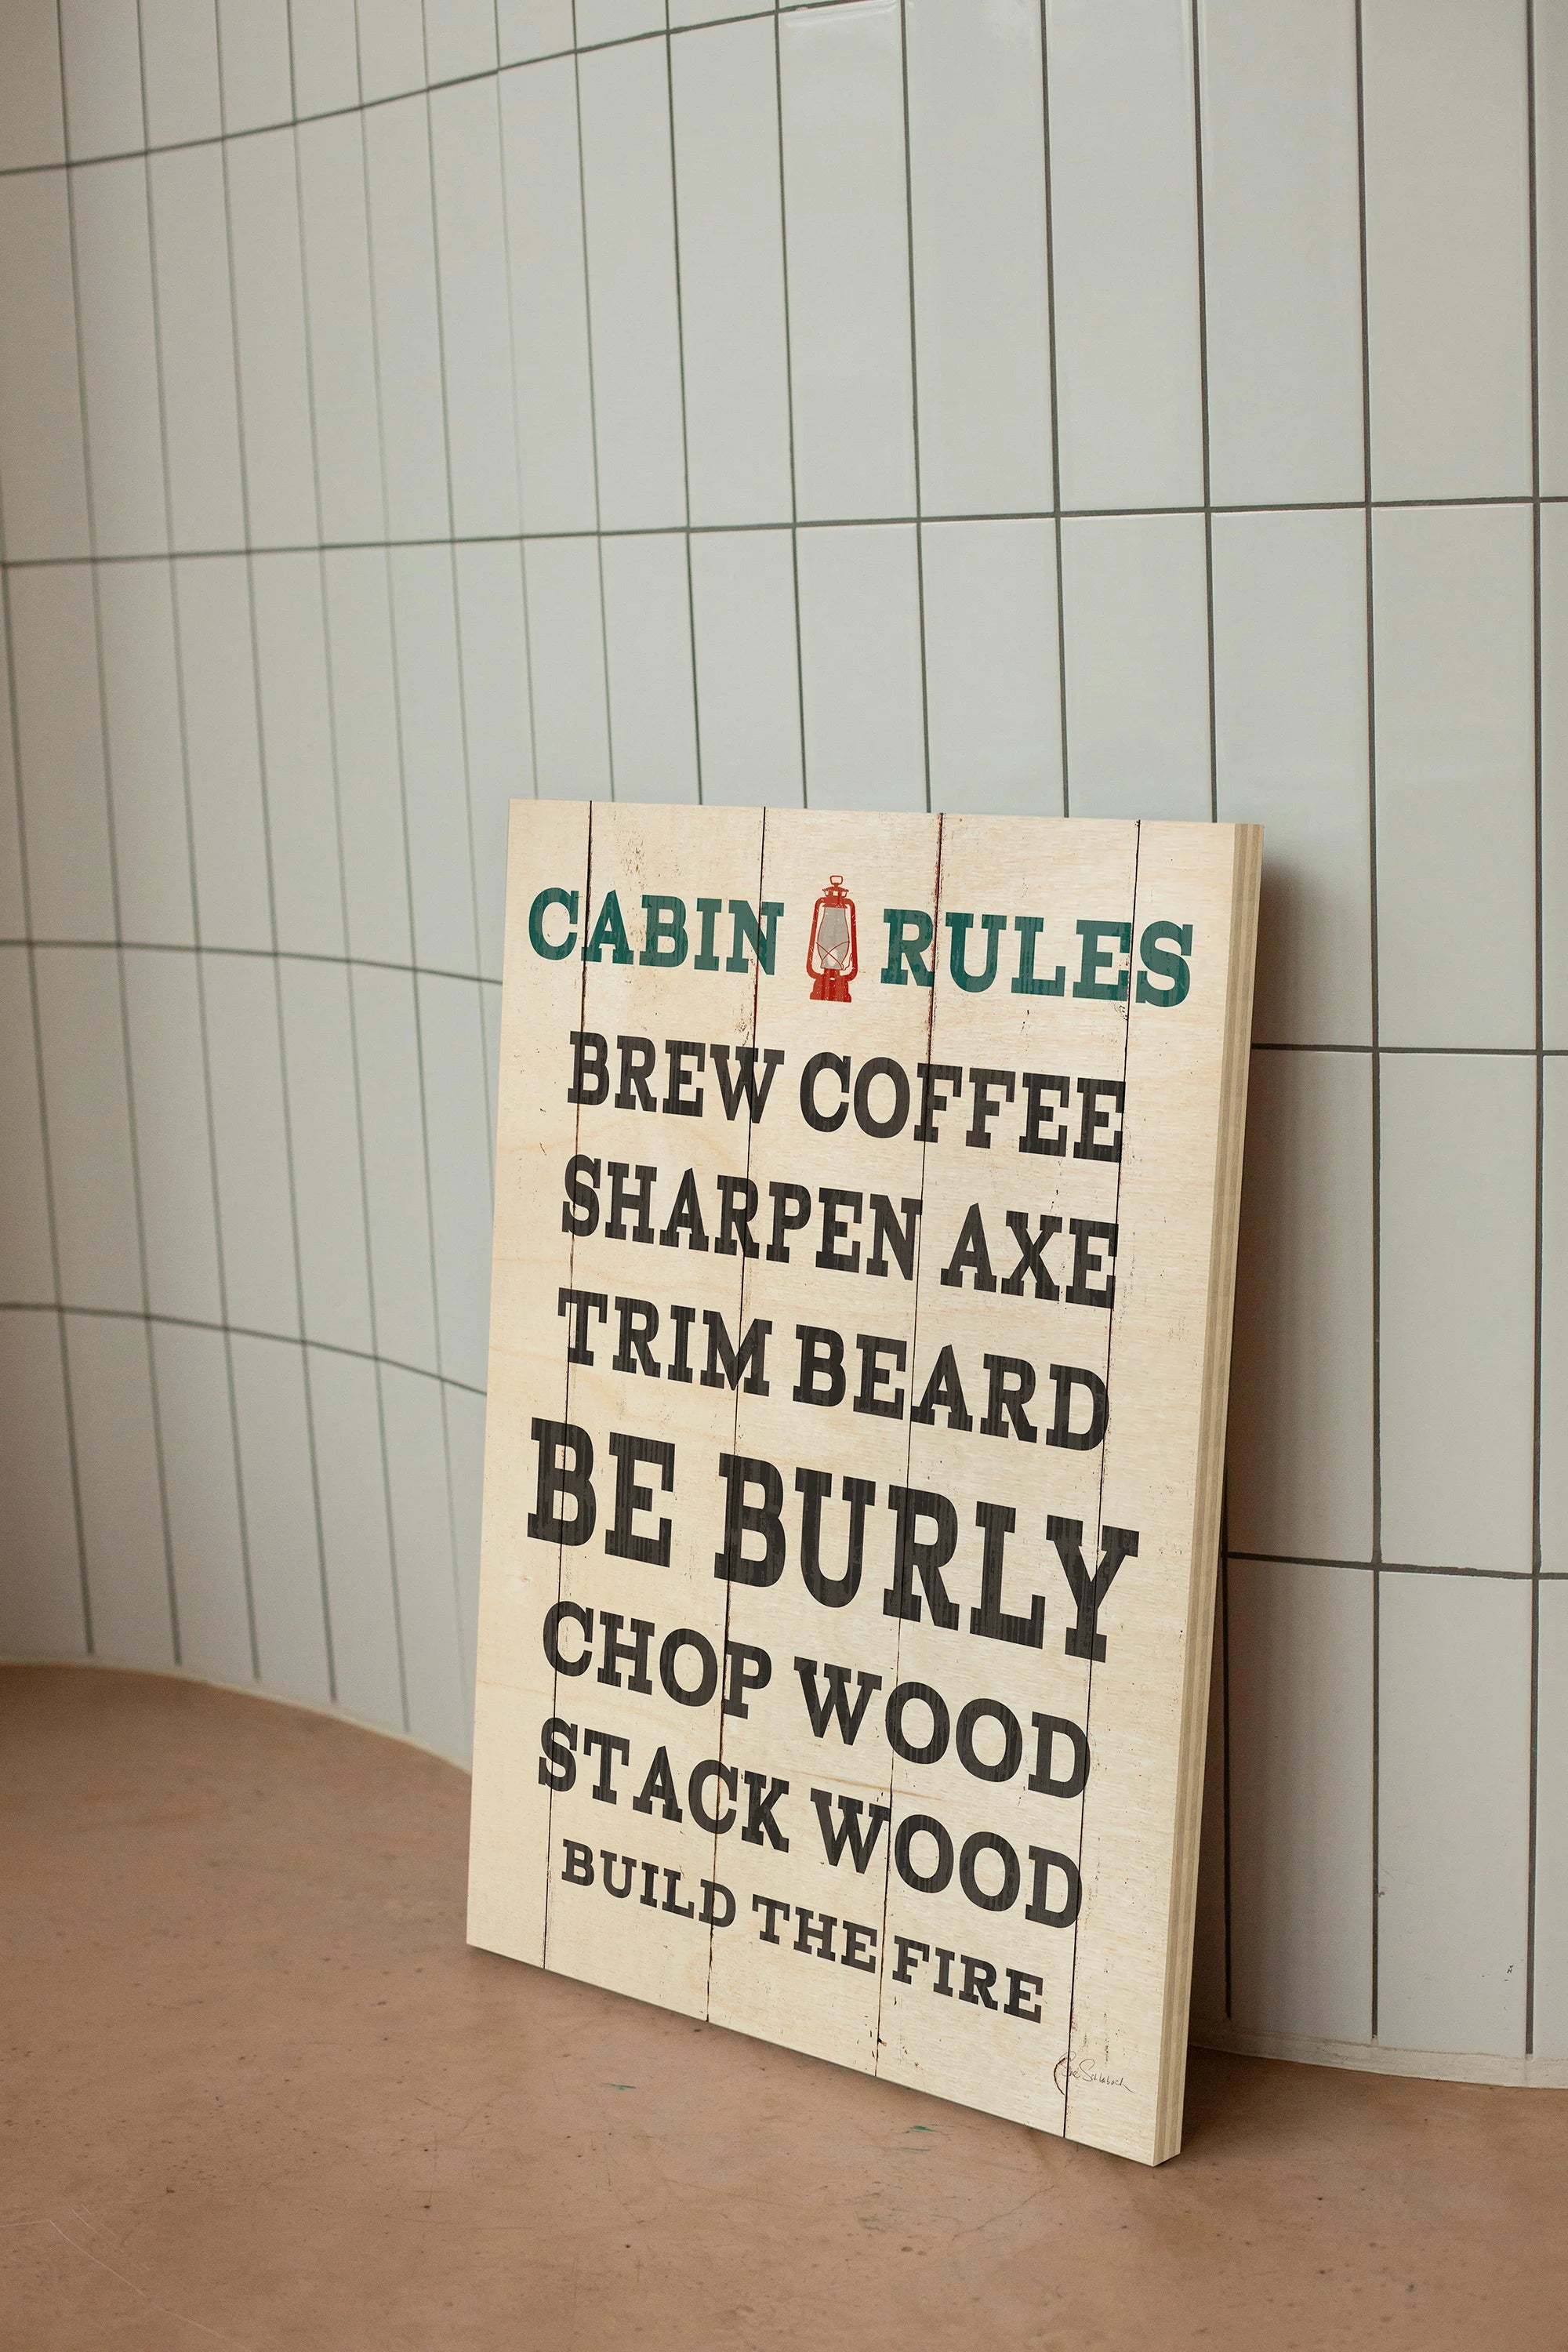 CABIN RULES
BREW COFFEE
SHARPEN AXE
TRIM BEARD
BE BURLY
CHOP WOOD
STACK WOOD
BUILD THE FIRE
Sue Schlabach